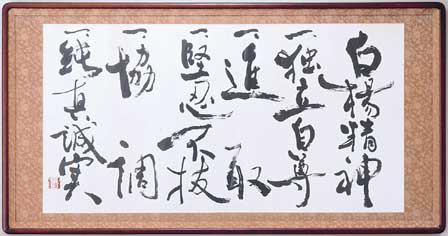 白楊精神
一獨立自尊
一進取
一堅忍不抜
一協調
一純真誠実